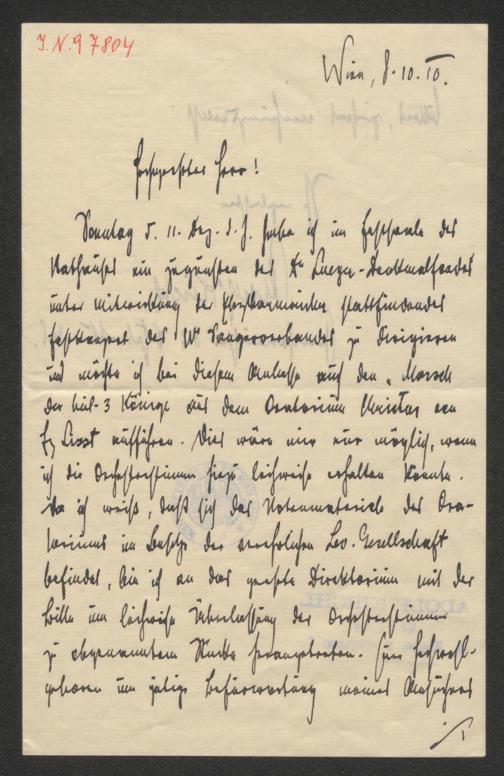 J.N. 97804
Wien, 8.10.10.
Hochgeehrter Herr!
Sonntag d. 11. Dez. d. J. habe ich im Festsaale des
Rathauses ein zugunsten des Dr Lueger-Denkmalfondes
unter Mitwirkung der Philharmoniker stattfindendes
Festkonzert des Wr Sängerverbandes zu dirigieren
und möchte ich bei diesem Anlasse auch den "Marsch
der heil. 3 Könige aus dem Oratorium Christus von
Fz Liszt aufführen. Dies wäre mir nur möglich, wenn
ich die Orchesterstimmen hiezu leihweise erhalten könnte.
Da ich weiß, daß sich das Notenmateriale des Ora-
toriums im Besitze der verehrlichen Leo-Gesellschaft
befindet, bin ich an das geehrte Direktorium mit der
Bitte um leihweise Überlassung der Orchesterstimmen
zu obgenanntem Werke herangetreten. Euer Hochwohl-
geboren um gütige Befürwortung meines Ansuchens